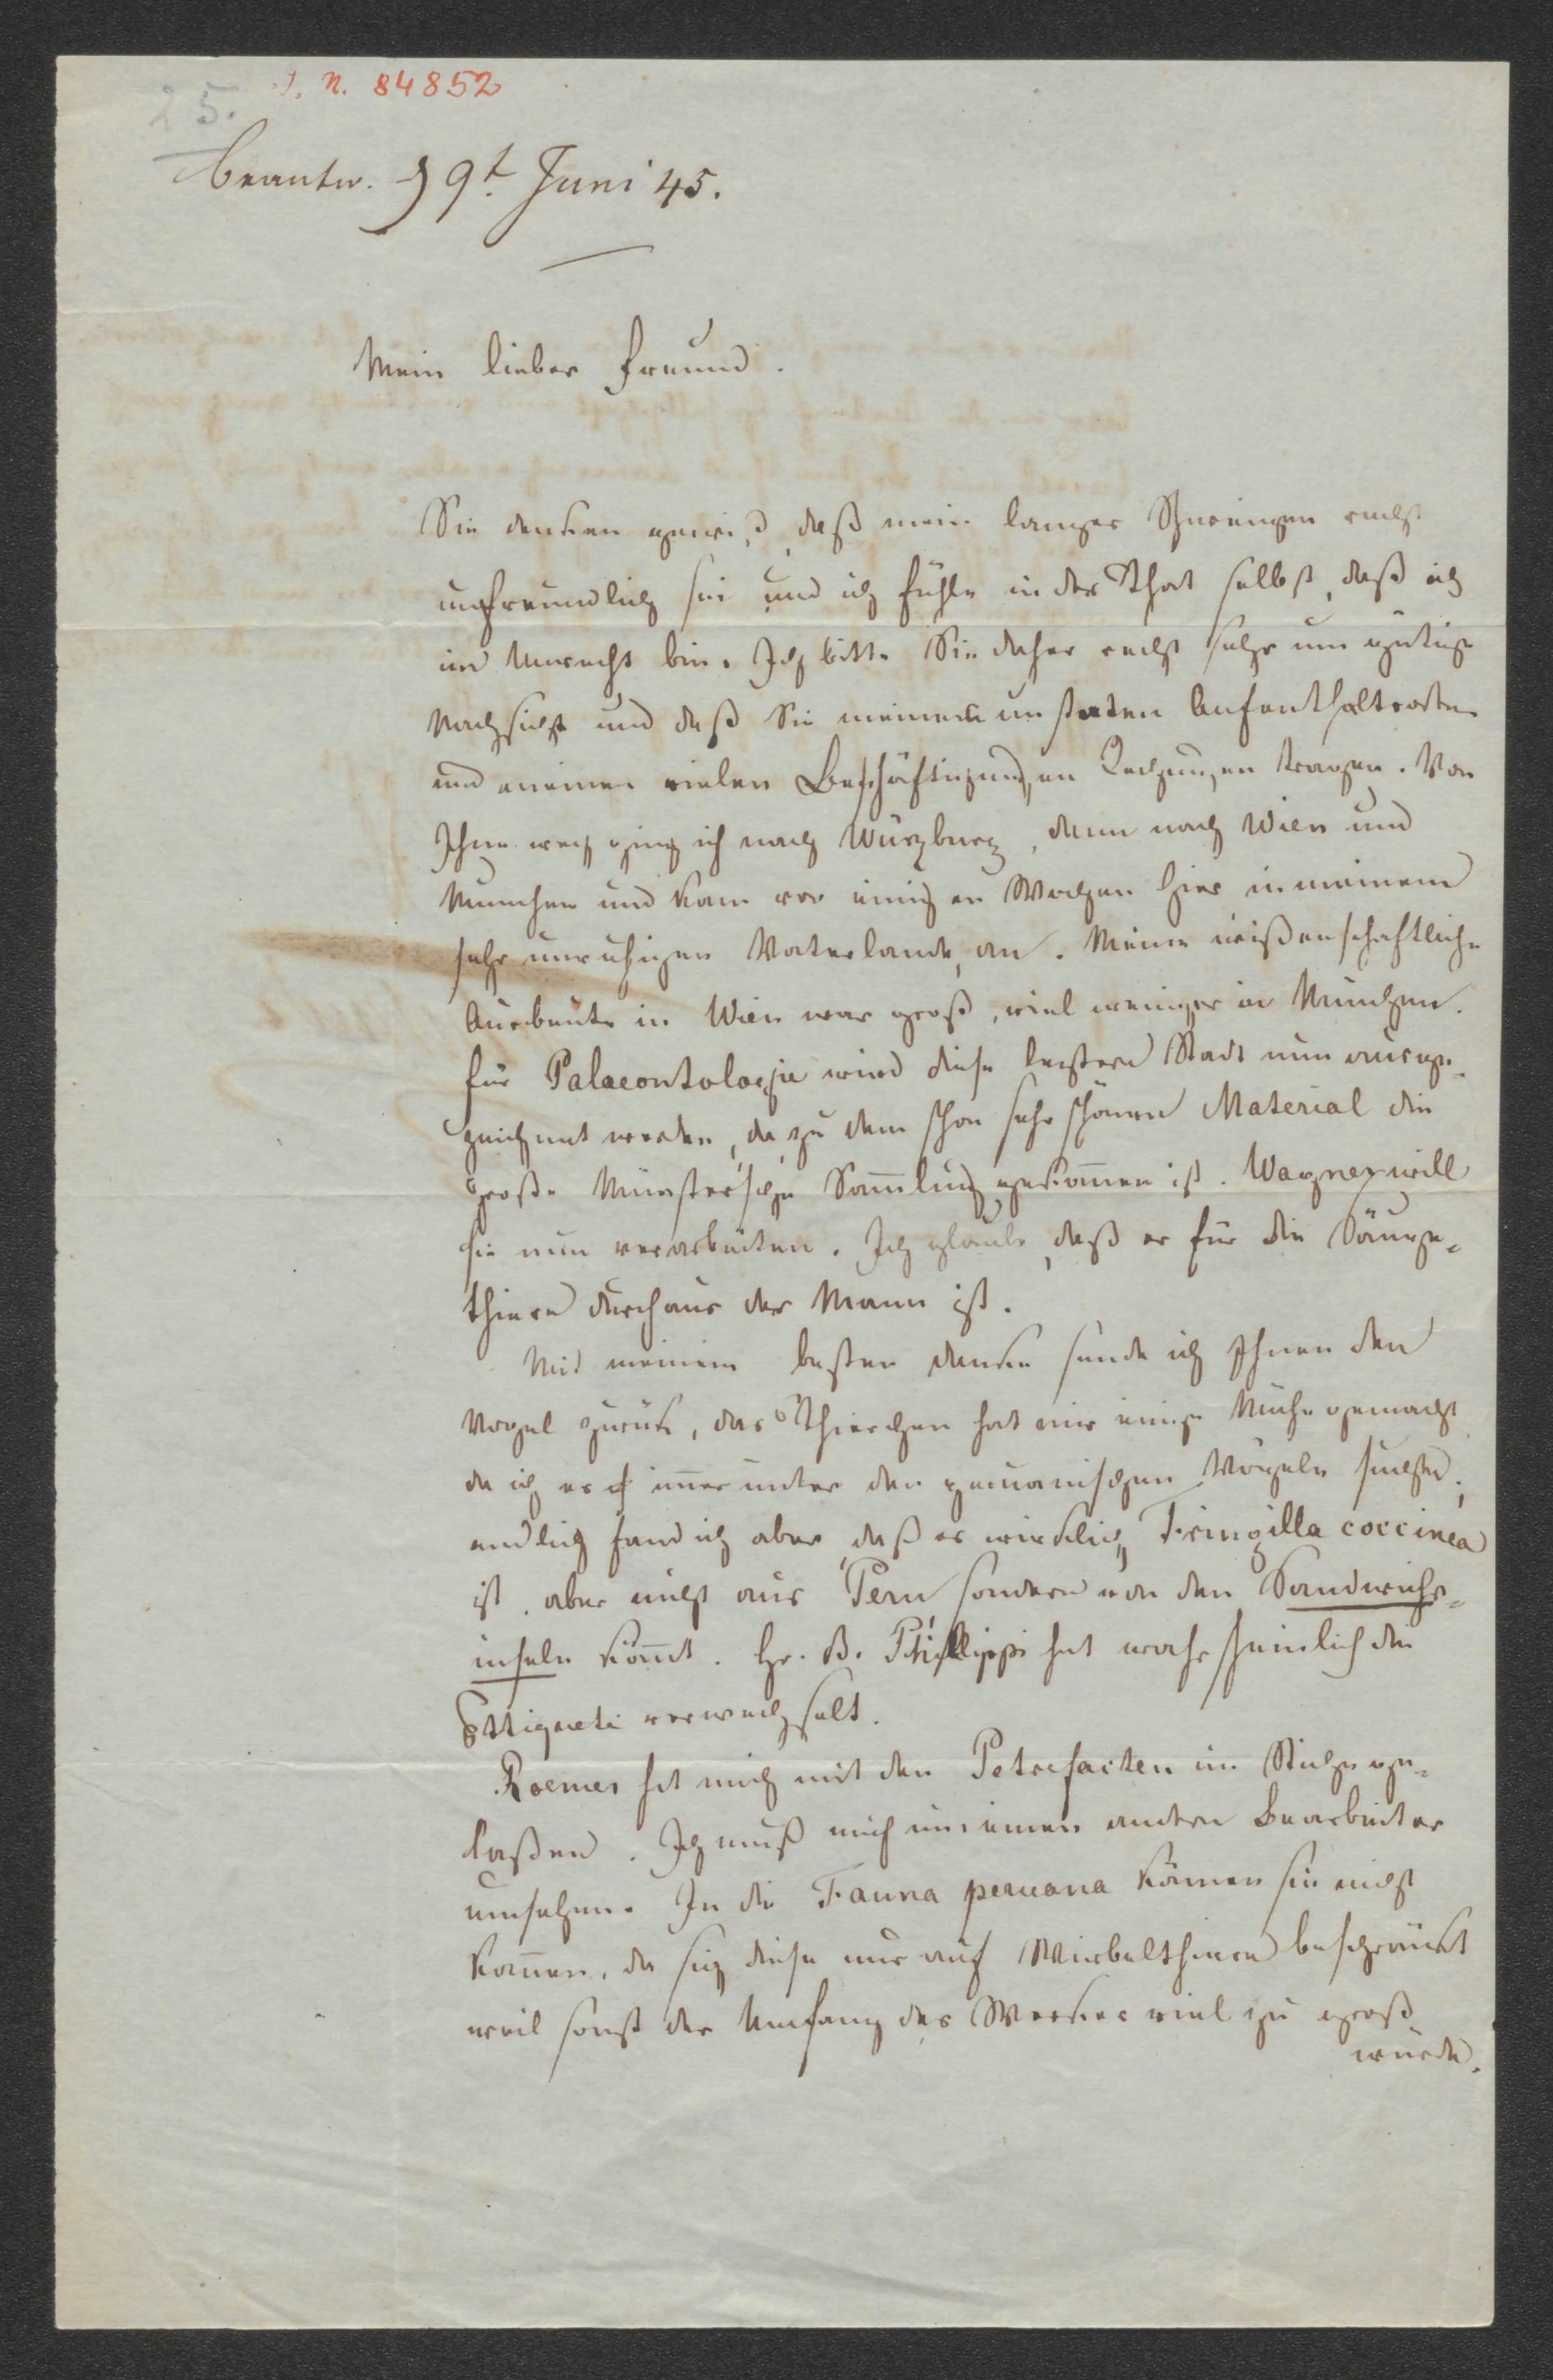 25.
J. N. 84852
beantw. 9t Juni 45.
Mein lieber Freund.
Sie denken gewiß, daß mein langes Schweigen recht
unfreundlich sei und ich fühle in der That selbst, daß ich
im Unrecht bin. Ich bitte Sie daher recht sehr um gütige
Nachsicht und daß Sie meinem unstäten Aufenthaltsorten
und meinen vielen Beschäftigungen Rechnungen tragen. Von
Ihnen weg ging ich nach Würzburg, dann nach Wien und
München und kam vor einigen Wochen hier in meinem
sehr unruhigen Vaterlande, an. Meine wißenschaftliche
Ausbeute in Wien war groß, viel weniger in München.
für Palaeontologie wird diese letztere Stadt nun ausge-
zeichnet werden, da zu dem schon sehr schönen Material die
große Münster'sche Sam̄lung gekom̄en ist. Wagner will
sie nun verarbeiten. Ich glaube, daß er für die Säuge-
thiere durchaus der Mann ist.
Mit meinem besten Danke sende ich Ihnen den
Vogel zurück, das Thierchen hat mir einige Mühe gemacht
da ich es im̄er unter den peruanischen Vögeln suchte;
endlich fand ich aber, daß es wirklich Fringilla coccinea
ist, aber nicht aus Peru sondern von den Sandwichs-
inseln kom̄t. Hr. B. Philippi hat wahrscheinlich die
Ettiquete verwechselt.
Roemer hat mich mit den Petrefacten im Stiche ge-
laßen. Ich muß mich um einen andern Bearbeiter
umsehen. In die Fauna peruana können sie nicht
kom̄en, da sich diese nur auf Wirbelthiere beschränkt
weil sonst der Umfang des Werkes viel zu groß
würde.